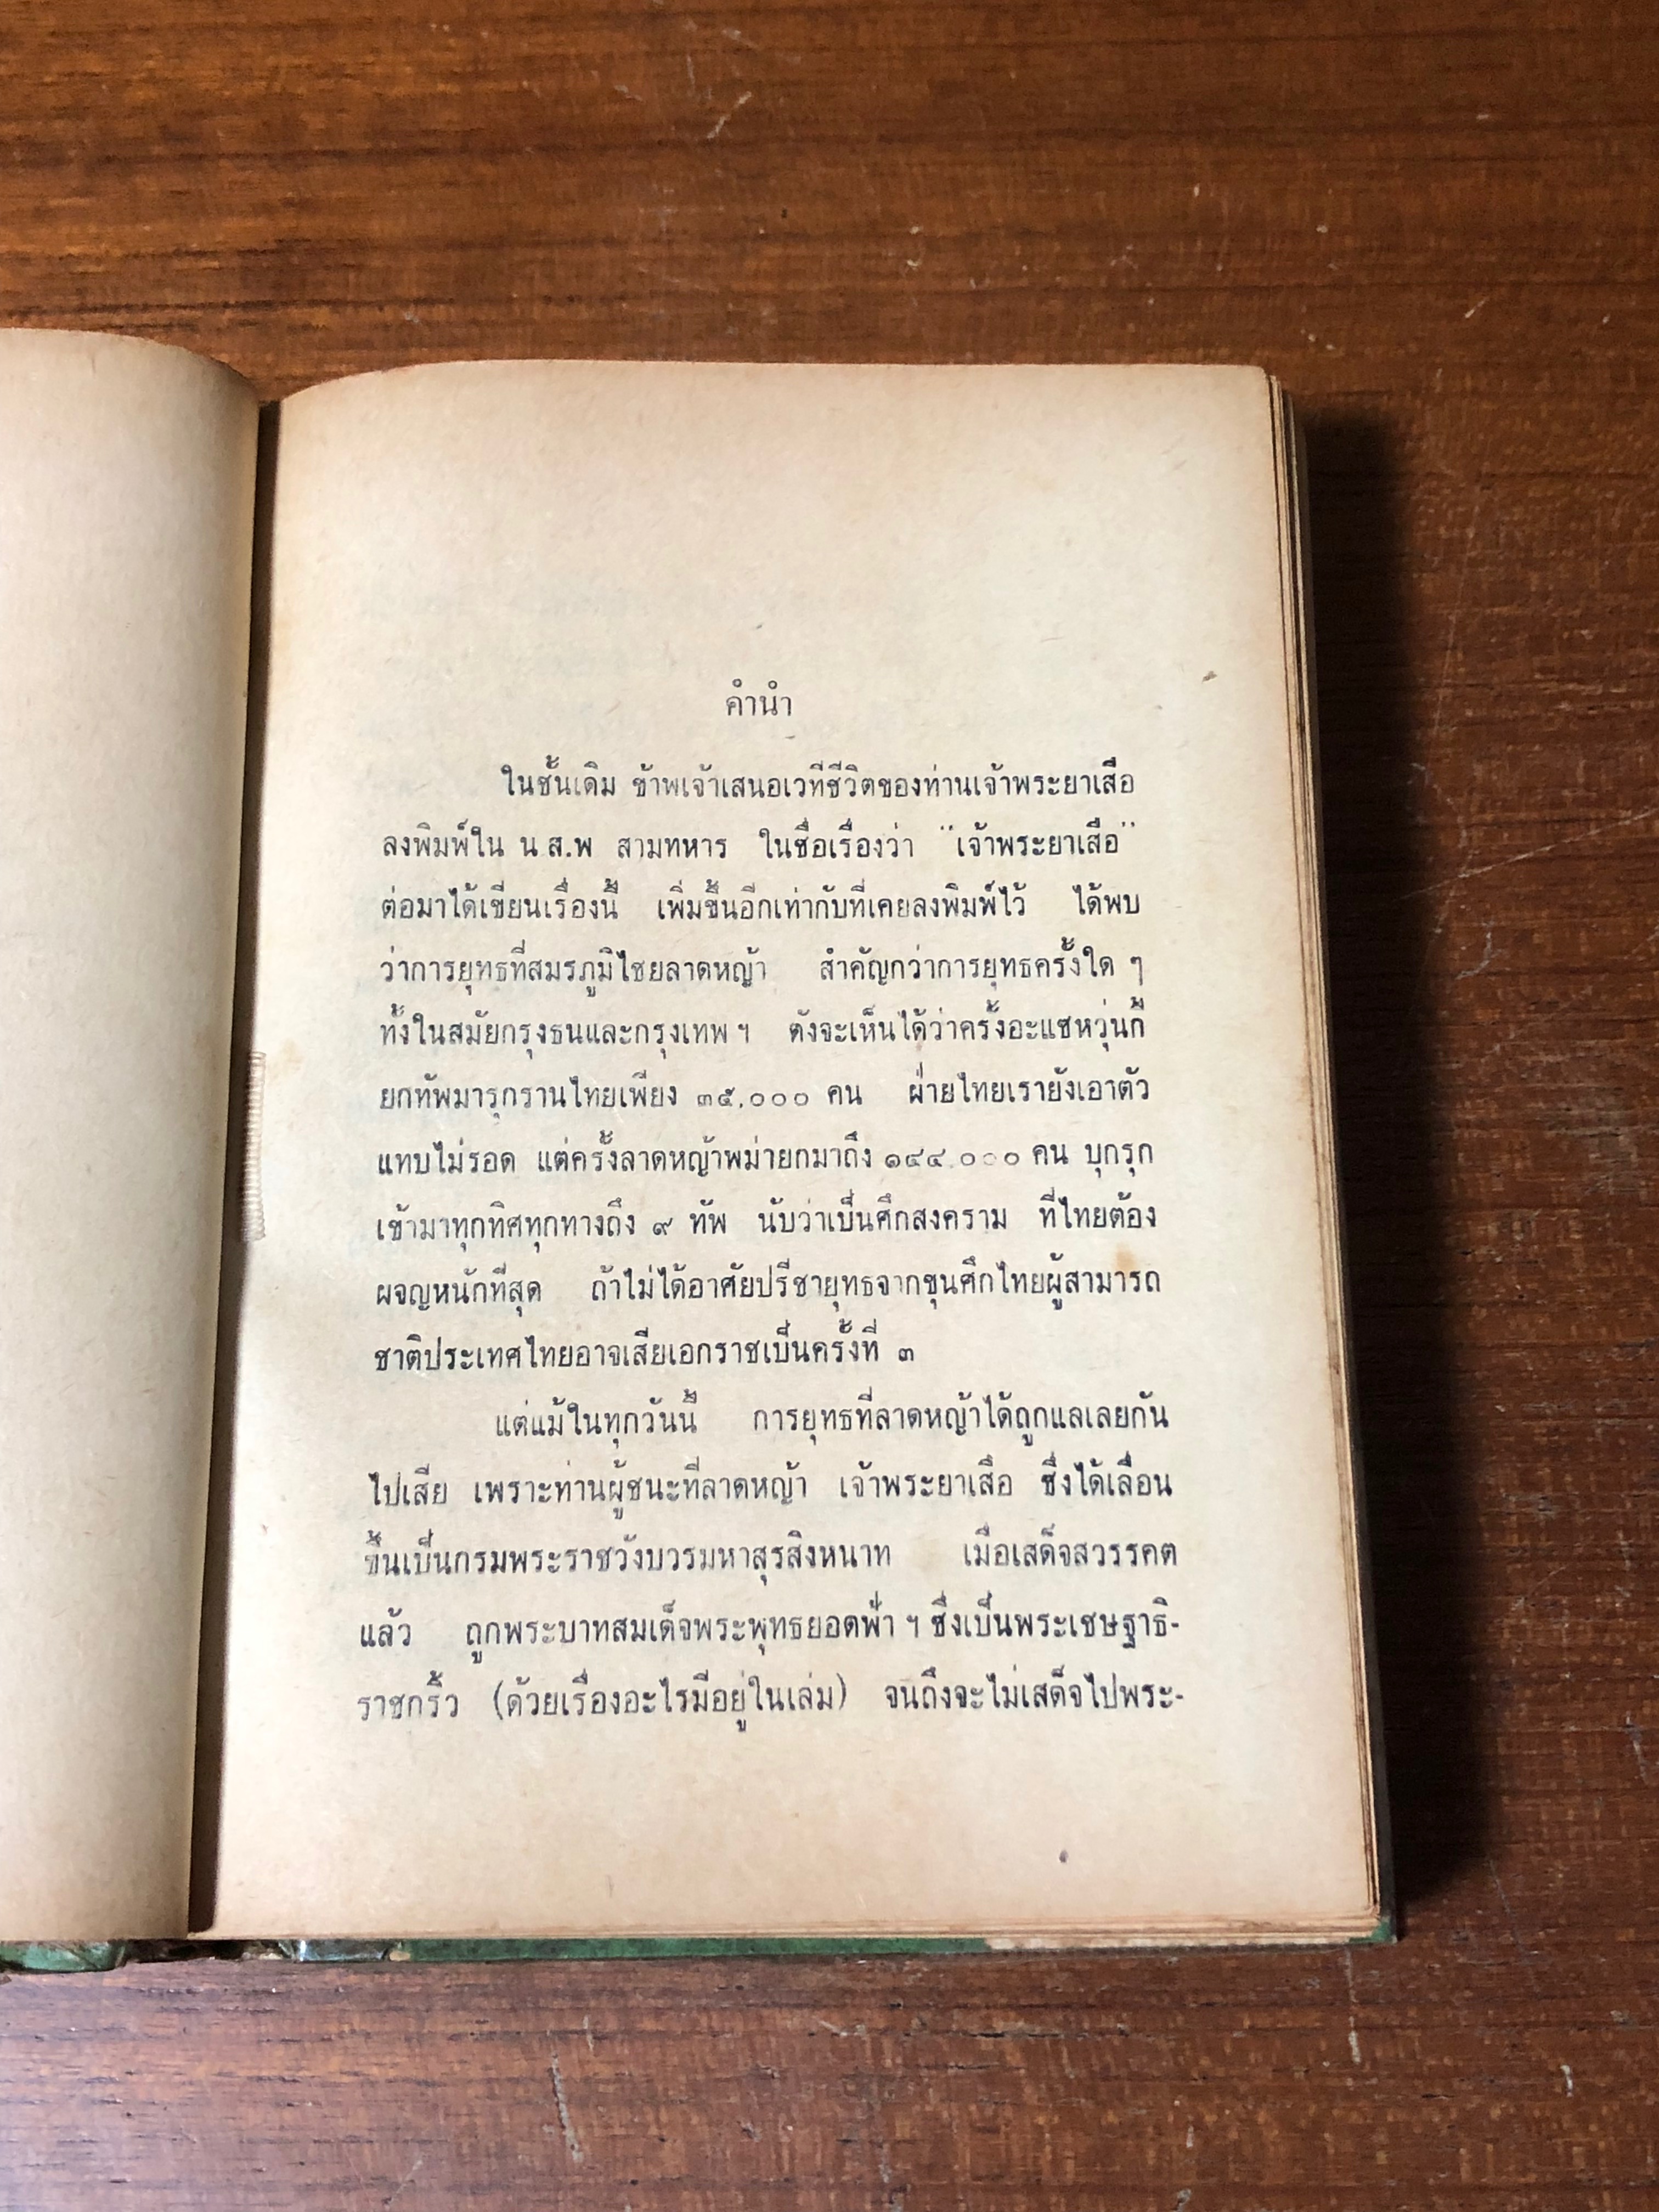 คำนำ
ในชั้นเดิม ข้าพเจ้าเสนอเวทีชีวิตของท่านเจ้าพระยาเสือ
ลงพิมพ์ใน น ส.พ สามทหาร ในชื่อเรื่องว่า "เจ้าพระยาเสือ"
ต่อมาได้เขียนเรื่องนี้ เพิ่มขึ้นอีกเท่ากับที่เคยลงพิมพ์ไว้ ได้พบ
ว่าการยุทธที่สมรภูมิไชยลาดหญ้า สำคัญกว่าการยุทธครั้งใด ๆ
ทั้งในสมัยกรุงธนและกรุงเทพ ฯ ดังจะเห็นได้ว่าครั้งอะแซหวุ่นกี้
ยกทัพมารุกรานไทยเพียง ๓๕,๐๐๐ คน ฝ่ายไทยเรายังเอาตัว
แทบไม่รอด แต่ครั้งลาดหญ้าพม่ายกมาถึง ๑๔๔,๐๐๐ คน บุกรุก
เข้ามาทุกทิศทุกทางถึง ๙ ทัพ นับว่าเป็นศึกสงคราม ที่ไทยต้อง
ผจญหนักที่สุด ถ้าไม่ได้อาศัยปรีชายุทธจากขุนศึกไทยผู้สามารถ
ชาติประเทศไทยอาจเสียเอกราชเป็นครั้งที่ ๓
แต่แม้ในทุกวันนี้ การยุทธที่ลาดหญ้าได้ถูกแลเลยกัน
ไปเสีย เพราะท่านผู้ชนะที่ลาดหญ้า เจ้าพระยาเสือ ซึ่งได้เลื่อน
ขึ้นเป็นกรมพระราชวังบวรมหาสุรสิงหนาท เมื่อเสด็จสวรรคต
แล้ว ถูกพระบาทสมเด็จพระพุทธยอดฟ้า ฯ ซึ่งเป็นพระเชษฐาธิ-
ราชกริ้ว (ด้วยเรื่องอะไรมีอยู่ในเล่ม) จนถึงจะไม่เสด็จไปพระ-